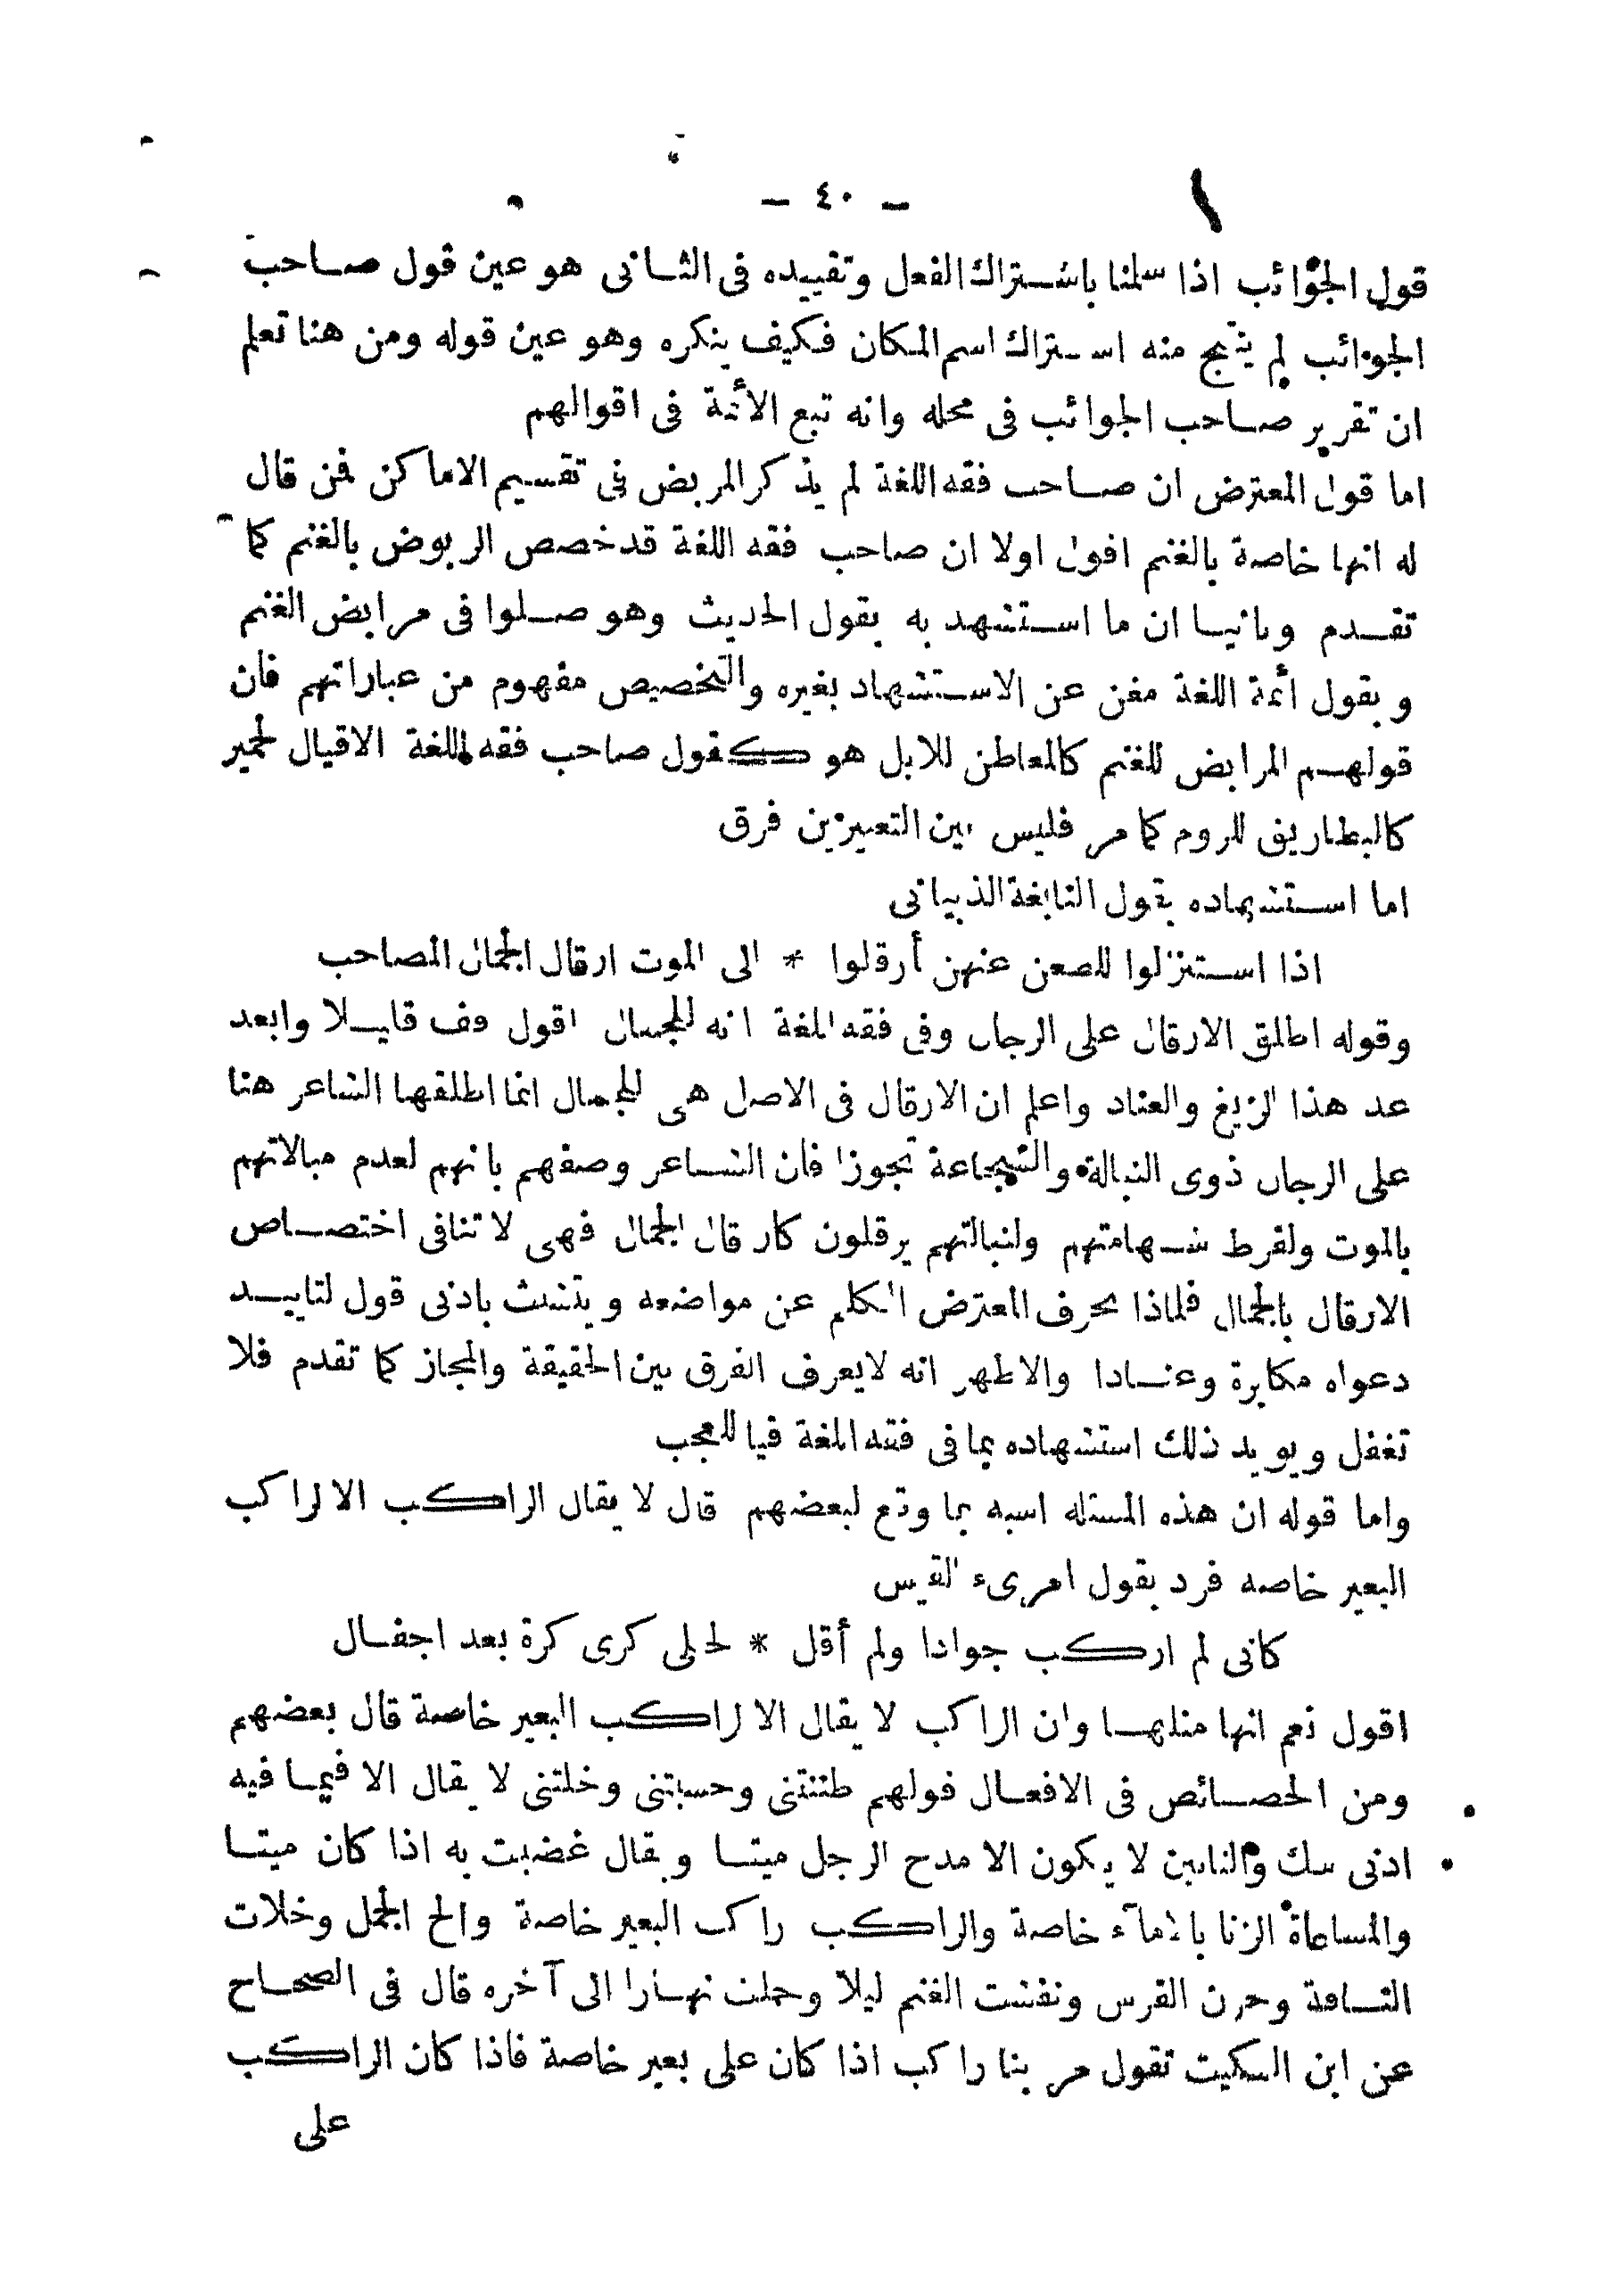 — ٤٠ —
قول الجوائب اذا سلمنا باشتراك الفعل وتقييده فى الثانى هو عين قول صاحب
الجوائب لم ينتج منه استراك اسم المكان فكيف ينكره وهو عين قوله ومن هنا تعلم
ان تقرير صاحب الجوائب فى محله وانه تبع الأئمة فى اقوالهم
اما قول المعترض ان صاحب فقه اللغة لم يذكر المربض فى تقسيم الاماكن فمن قال
له انها خاصة بالغنم اقول اولا ان صاحب فقه اللغة قد خصص الربوض بالغنم كما
تقدم وثانيا ان ما استشهد به بقول الحديث وهو صلوا فى مرابض الغنم
وبقول أئمة اللغة مغن عن الاستشهاد بغيره والتخصيص مفهوم من عباراتهم فان
قولهم المرابض للغنم كالمعاطن للابل هو كقول صاحب فقه اللغة الاقيال لحمير
كالبطاريق للروم كما مر فليس بين التعبيرين فرق
اما استشهاده بقول النابغة الذبيانى
اذا استنزلوا للطعن عنهن أرقلوا * الى الموت ارقال الجمال المصاعب
وقوله اطلق الارقال على الرجال وفى فقه اللغة انه للجمال اقول قف قليلا وابعد
عد هذا الزيغ والعناد واعلم ان الارقال فى الاصل هى للجمال انما اطلقها الشاعر هنا
على الرجال ذوى النبالة والشجاعة تجوزا فان الشاعر وصفهم بانهم لعدم مبالاتهم
بالموت ولفرط شهامتهم ولنبالتهم يرقلون كارقال الجمال فهى لا تنافى اختصاص
الارقال بالجمال فلماذا يحرف المعترض الكلم عن مواضعه ويتشبث بادنى قول لتاييد
دعواه مكابرة وعنادا والاظهر انه لايعرف الفرق بين الحقيقة والمجاز كما تقدم فلا
تغفل ويويد ذلك استشهاده بما فى فقه اللغة فيا للعجب
واما قوله ان هذه المسئله اشبه بما وقع لبعضهم قال لا يقال الراكب الا لراكب
البعير خاصه فرد بقول امرىء القيس
كانى لم اركب جوادا ولم أقل * لخيلى كرى كرة بعد اجفال
اقول نعم انها مثلها وان الراكب لا يقال الا لراكب البعير خاصة قال بعضهم
ومن الخصائص فى الافعال قولهم ظننتنى وحسبتنى وخلتنى لا يقال الا فيما فيه
ادنى شك والتابين لا يكون الا مدح الرجل ميتا ويقال غضبت به اذا كان ميتا
والمساعاة الزنا بالامآء خاصة والراكب راكب البعير خاصة والح الجمل وخلات
الناقة وحرن الفرس ونفشت الغنم ليلا وهملت نهارا الى آخره قال فى الصحاح
عن ابن السكيت تقول مر بنا راكب اذا كان على بعير خاصة فاذا كان الراكب
على